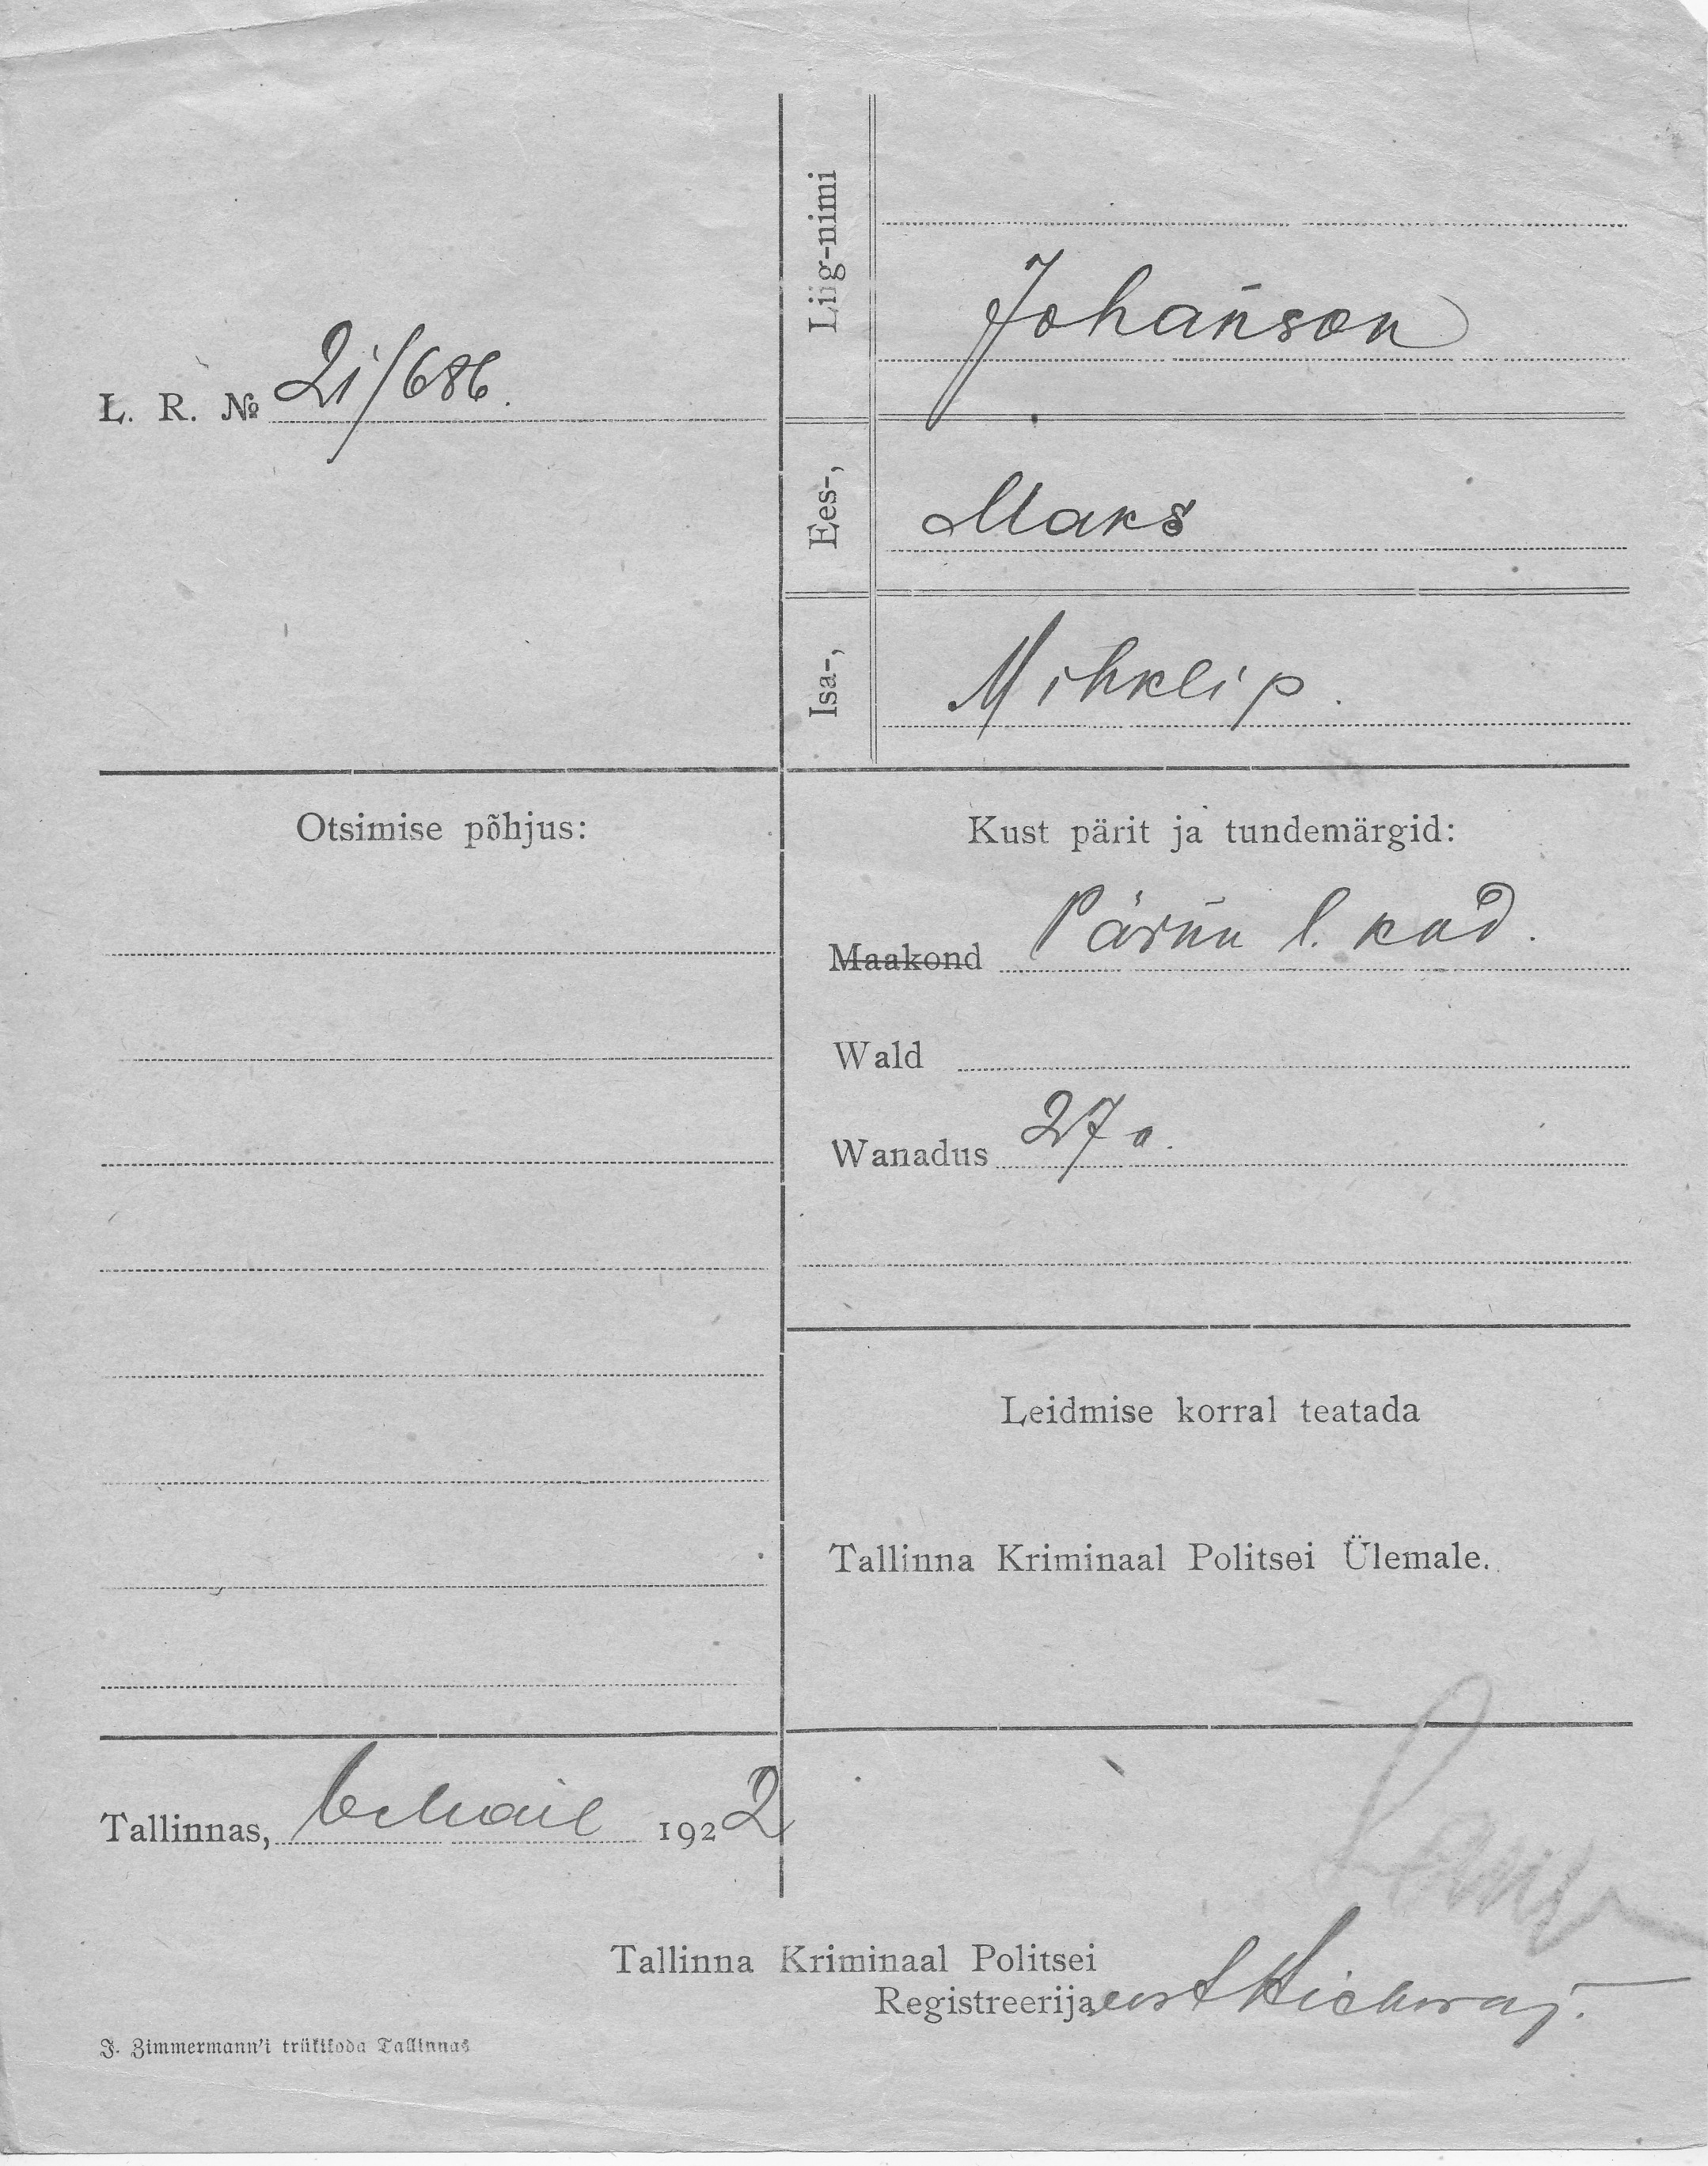 L. R. № 21/686.
Liig-nimi Johanson
Ees-, Maks
Isa-, Mihkli p.
Otsimise põhjus:
Kust pärit ja tundemärgid:
Maakond Pärnu l. kod.
Wald
Wanadus 27 a.
Leidmise korral teatada
Tallinna Kriminaal Politsei Ülemale.
Tallinnas, 6 mail 1922
Tallinna Kriminaal Politsei
Registreerija eest
J. Zimmermann'i trükikoda Tallinnas